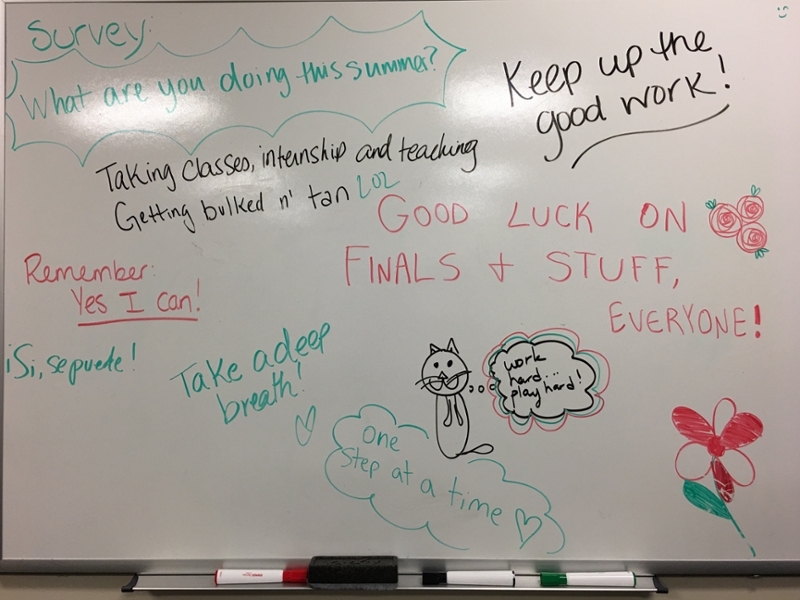 Survey:
What are you doing this summer?
Keep up the
good work!
Taking classes, internship and teaching
Getting bulked n' tan LOL
GOOD LUCK ON
FINALS + STUFF,
EVERYONE!
Remember:
Yes I can!
¡Si, se puede!
Take a deep
breath!
work
hard...
play hard!
One
Step at a time